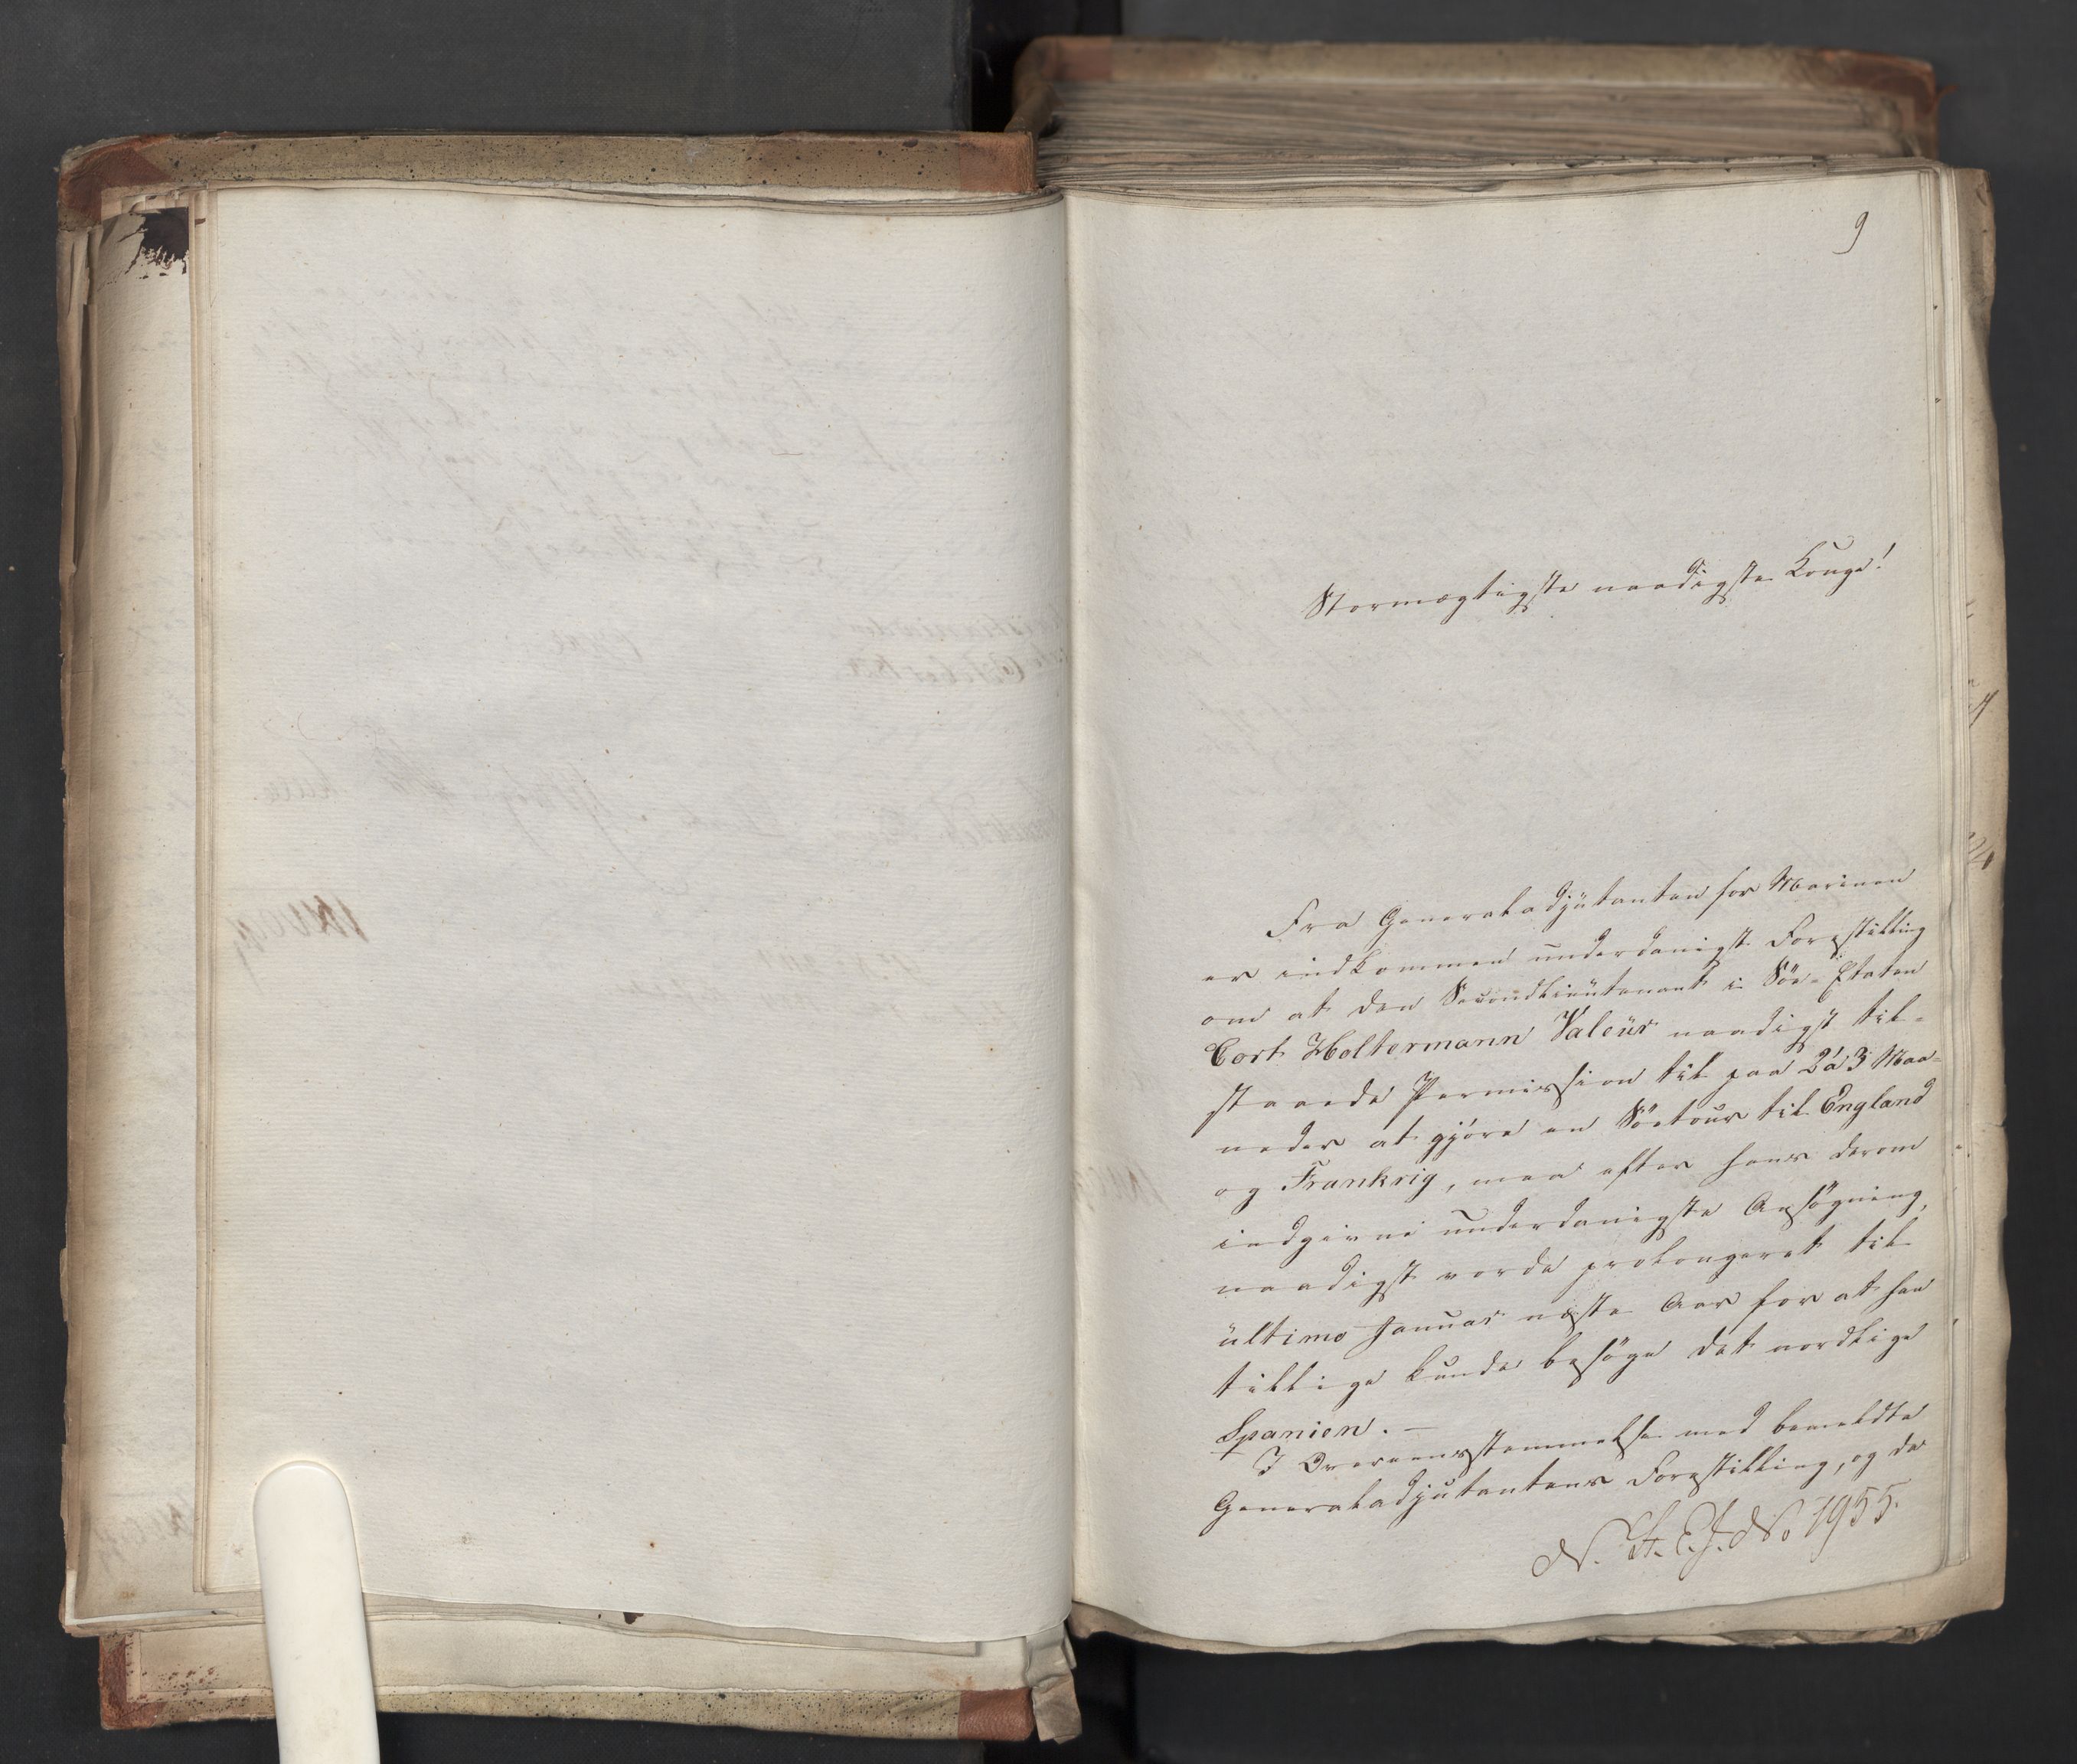 9
Stormægtigste naadigste Konge!
Fra Generaladjütanten for Marinen
er indkommen underdanigst Forestilling
om at den Secondlieutenant i Söe-Etaten
Cort Holtermann Valeür naadigst til-
staaede Permission til paa 2 á 3 Maa-
neder at gjöre en Söetour til England
og Frankrig, maa efter hans derom
indgivne underdanigste Ansögning,
naadigst vorde prolongeret til
ültimo Januar næste Aar for at han
tillige kunde besöge det nordlige
Spanien. —
I Overeensstemmelse med bemeldte
Generaladjutantens Forestilling, og da
N. St. E. J. No 1955.